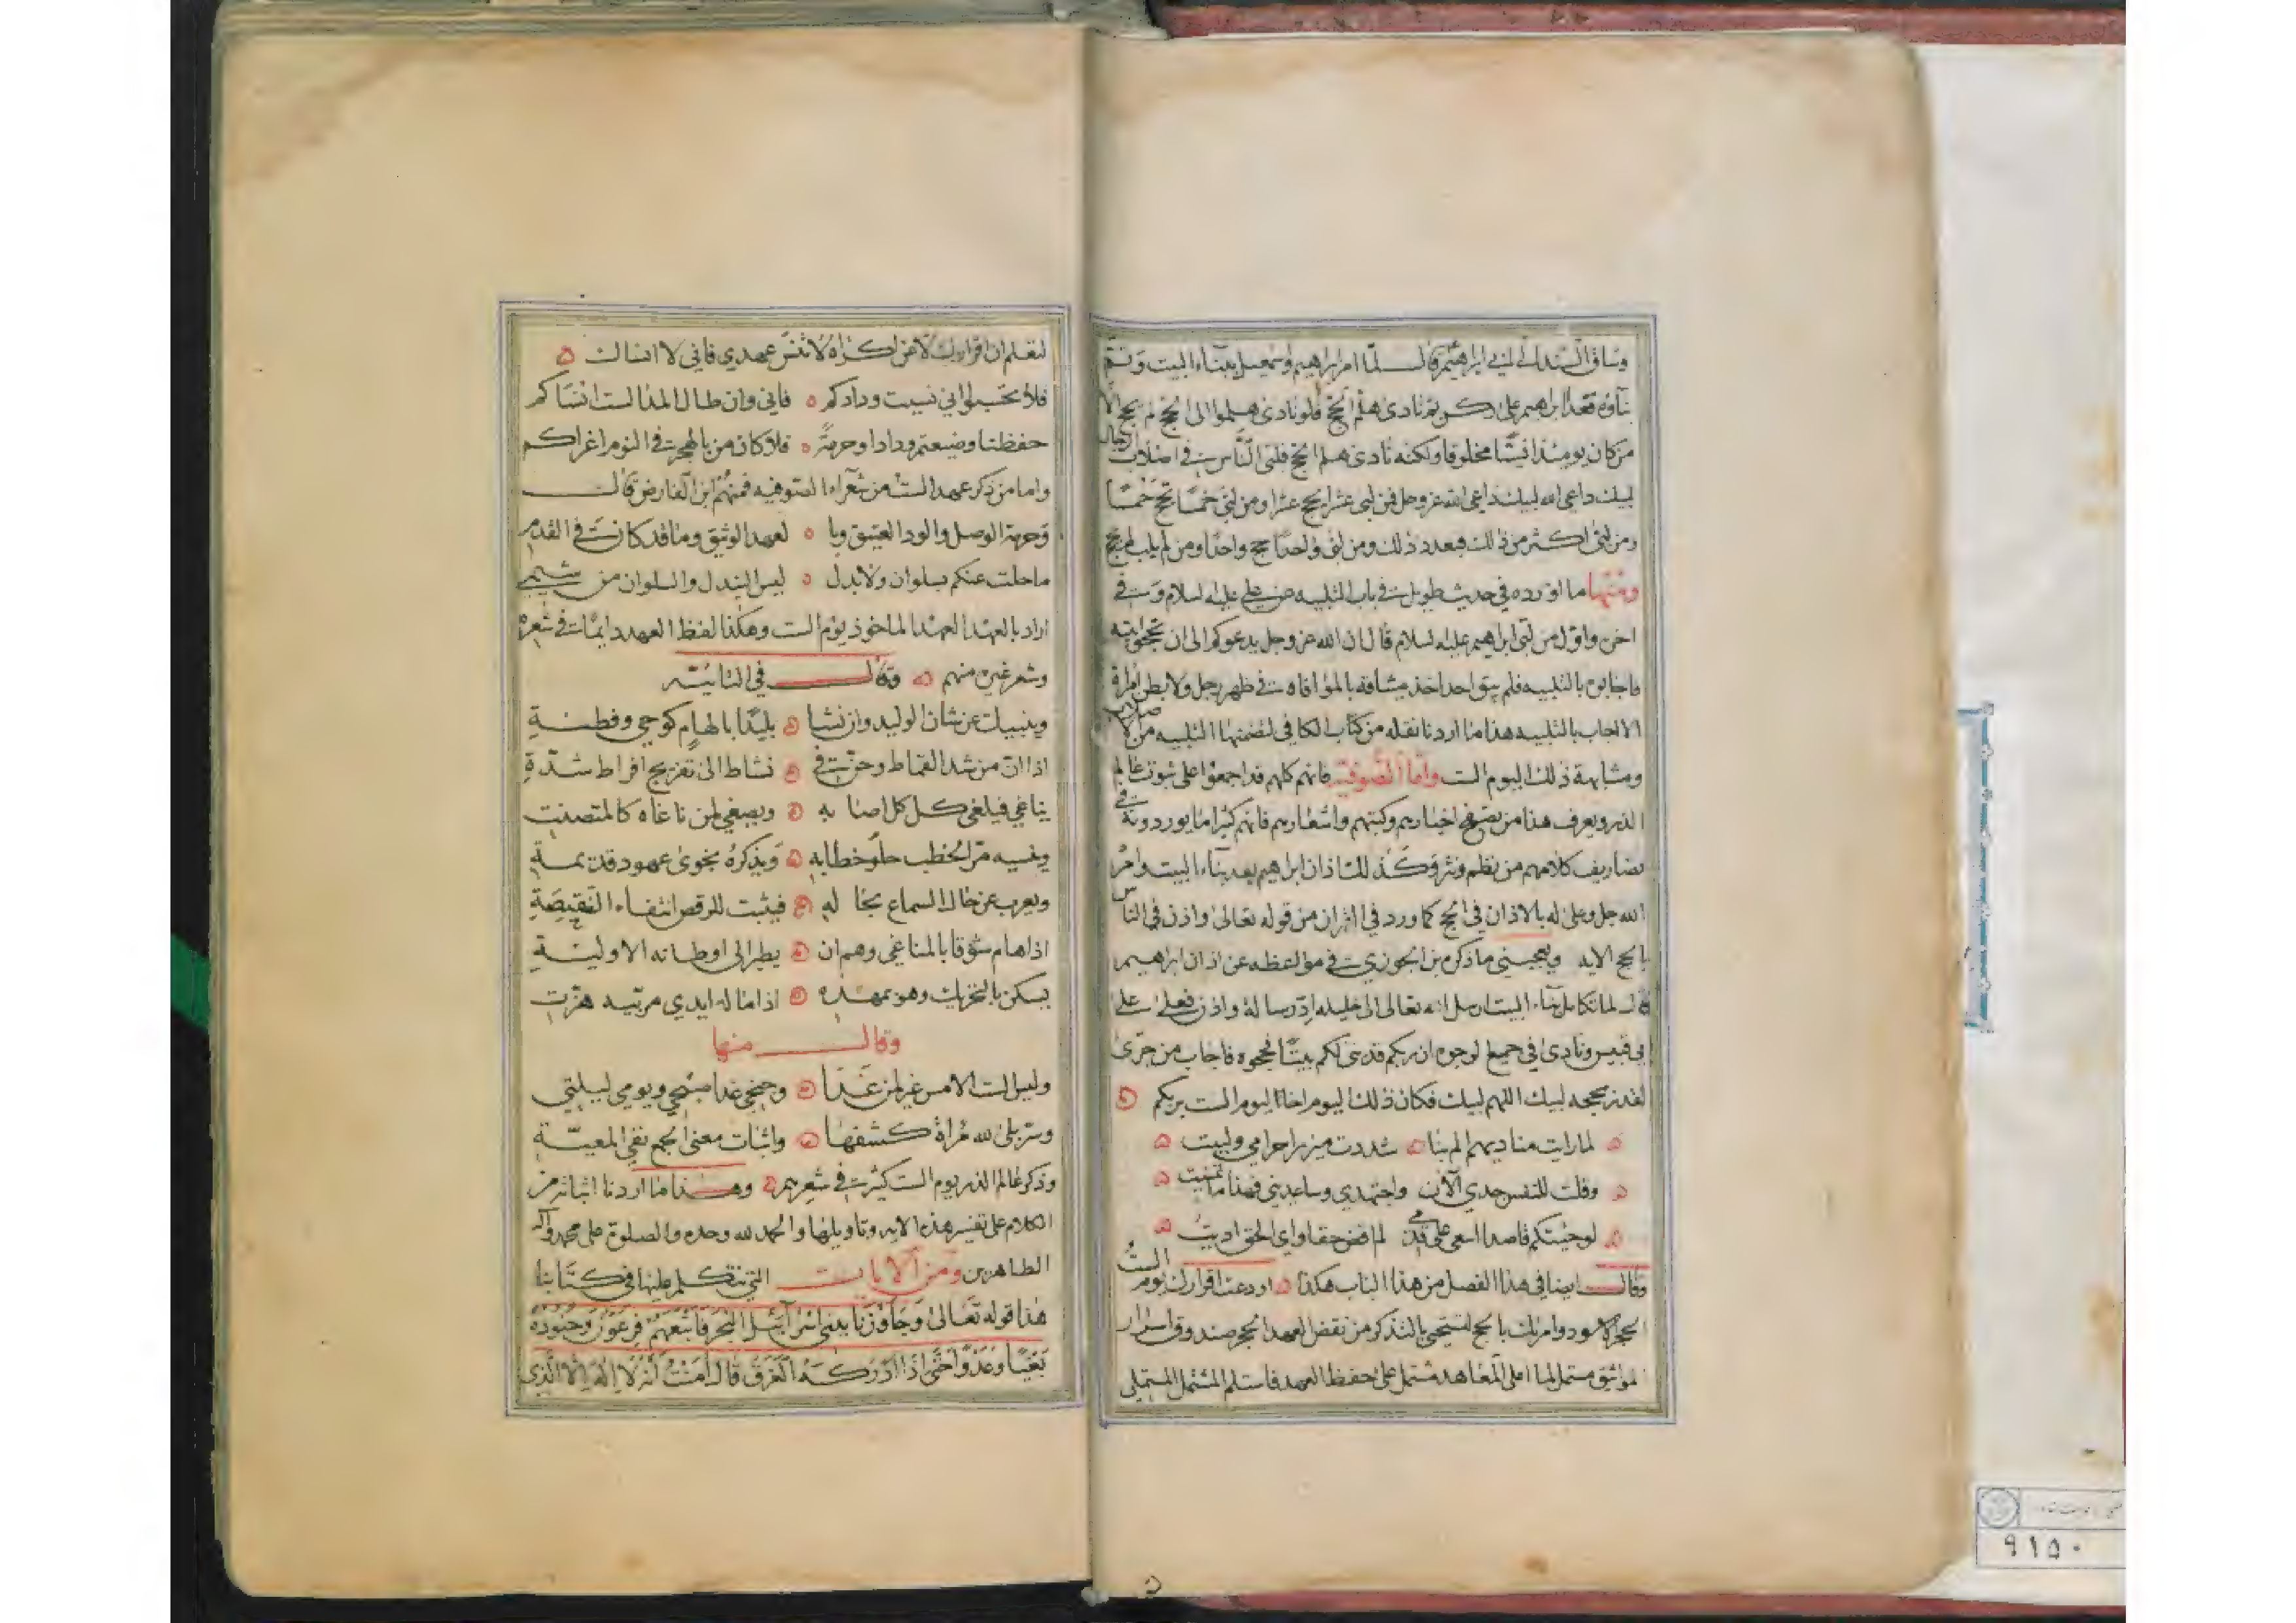 وساق السند الى ابي ابراهيم قال لما امر ابراهيم واسمعيل ببناء البيت وتم
بناؤه قعد ابراهيم على ركن ثم نادى هلم الحج فلو نادى هلموا الى الحج لم يحج الا
من كان يومئذ انسيا مخلوقا ولكنه نادى هلم الحج فلبى الناس في اصلاب الرجال
لبيك داعى الله لبيك داعى الله عز وجل فمن لبى عشرا يحج عشرا ومن لبى خمسا يحج خمسا
ومن لبى اكثر من ذلك فبعدد ذلك ومن لبى واحدا حج واحدا ومن لم يلب لم يحج
ومنها ما اورده في حديث طويل في باب التلبيه عن علي عليه السلام وفي
اخره واول من لبى ابراهيم عليه السلام قال ان الله عز وجل يدعوكم الى ان تحجوا بيته
فاجابوه بالتلبيه فلم يبق احد اخذ ميثاقه بالموافاه في ظهر رجل ولا بطن امراة
الا اجاب بالتلبيه هذا ما اردنا نقله من كتاب الكافي لتضمنها التلبيه من الاصلاب
ومشابهة ذلك اليوم الست واما الصوفية فانهم كلهم قد اجمعوا على ثبوت عالم
الذر ويعرف هذا من تصفح اخبارهم وكتبهم واشعارهم فانهم كثيرا ما يوردونه في
تصاريف كلامهم من نظم ونثر وكذلك اذان ابراهيم بعد بناء البيت وامر
الله جل وعلى له بالاذان في الحج كما ورد في القران من قوله تعالى واذن في الناس
بالحج الايه ويعجبني ما ذكره بن الجوزي في مواعظه عن اذان ابراهيم
قال لما تكامل بناء البيت ارسل الله تعالى الى خليله اد رسالة واذن فعلى على
ابي قبيس ونادى في جميع الوجوه ان ربكم قد بنى لكم بيتا فحجوه فاجاب من جرى
القدر بحجه لبيك اللهم لبيك فكان ذلك اليوم اخا اليوم الست بربكم
لما رايت مناديهم الم بنا شددت ميزر احرامي ولبيت
وقلت للنفس جدي الآن واجتهدي وساعديني فهذا ما تمنيت
لو جئتكم قاصدا اسعى على قدمي لم اقض حقا واي الحق اديت
وقال ايضا في هذا الفصل من هذا الباب هكذا اودعت اقرارك يوم الست
الحجر الاسود وامرتك بالحج لتستحيي بالتذكر من نقض العهد الحجر صندوق اسرار
المواثيق مستمل لما املى المعاهد مشتمل على حفظ العهد فاستلم المشتمل المستملي
لتعلم ان اقرارك لا عن اكراه لا تنس عهدي فاني لا انساك
فلا تحسبوا اني نسيت ودادكم فاني وان طال المدا لست انساكم
حفظنا وضيعتم ودادا وحرمة فلا كان من بالهجر في النوم اغراكم
واما من ذكر عهد الست من شعراء الصوفيه فمنهم ابن الفارض قال
وحرمة الوصل والود العتيق وبا لعهد الوثيق وما قد كان في القدم
ما حلت عنكم بسلوان ولا بدل ليس التبدل والسلوان من شيمي
اراد بالعهد العهد الماخوذ يوم الست وهكذا لفظ العهد دايما في شعره
وشعر غيره منهم وقال في التائيه
وينبيك عن شان الوليد وان نشا بليدا بالهام كوحي وفطنة
اذا ان من شد القماط وحن في نشاط الى تفريج افراط شدة
يناغي فيلغي كل كل اصابه ويصغي لمن ناغاه كالمتصنت
وينسيه مر الخطب حلو خطابه ويذكره نجوى عهود قديمة
ويعرب عن حال السماع بحاله فيثبت للرقص انتفاء النقيصة
اذا هام شوقا بالمناغي وهم ان يطير الى اوطانه الاولية
يسكن بالتحريك وهو بمهده اذا ما له ايدي مربيه هزت
وقال منها
وليس الست الامس غير لمن غدا وجنحي غدا صبحي ويومي ليلتي
وسر بلى لله مرآة كشفها واثبات معنى الجمع نفي المعية
وذكر عالم الذر يوم الست كثير في شعرهم وهذا ما اردنا اثباته من
الكلام على تفسير هذه الايه وتاويلها والحمد لله وحده والصلوة على محمد واله
الطاهرين ومن الايات التي نتكلم عليها في كتابنا
هذا قوله تعالى وَجَاوَزْنَا ببني اسرآئيل البحر فاتبعهم فرعون وجنوده
بغيا وعدوا حتى اذا ادركه الغرق قال امنت انه لا اله الا الذي
٩١٥٠